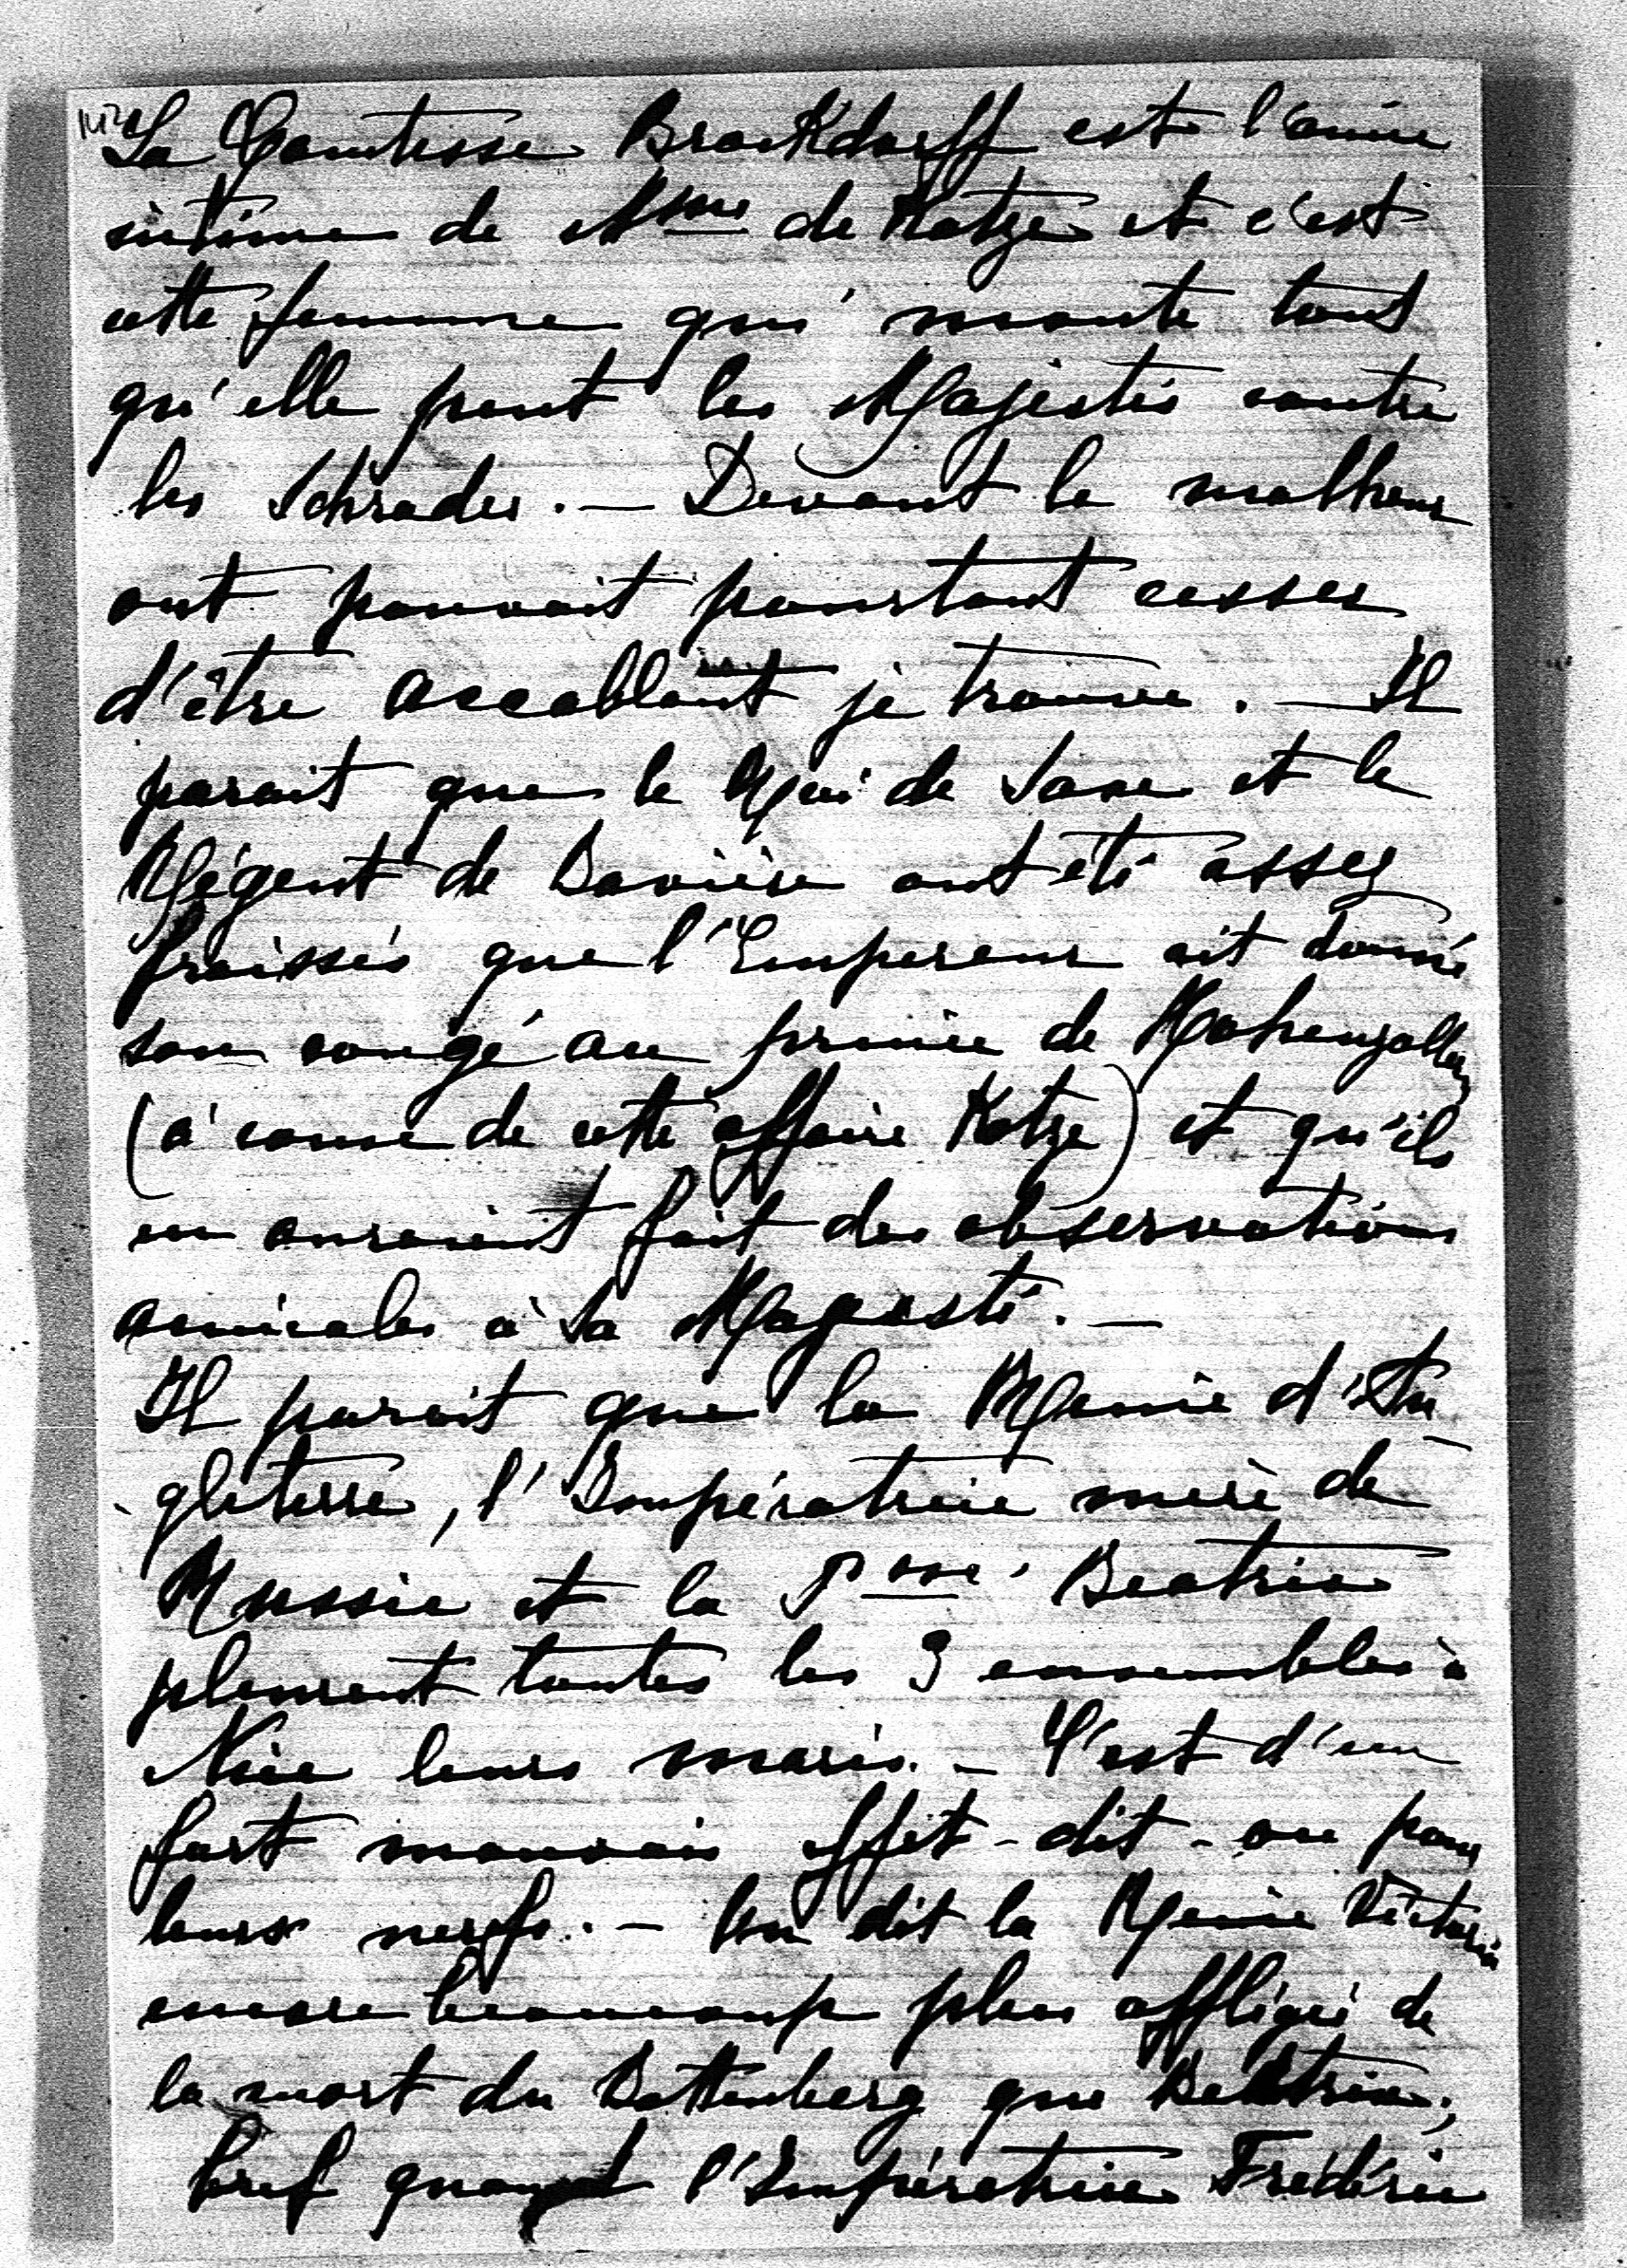 La Comtesse Brockdorff est l'amie
intime de Mme de Kotze et c'est
cette femme qui monte tant
qu'elle peut les Majestés contre
les Schrader. — Devant le malheur
ont pouvait pourtant cesser
d'être accablant je trouve. — Il
parait que le Roi de Saxe et le
Régent de Bavière ont été assez
froissés que l'Empereur ait donné
son congé au prince de Hohenzollern
(à cause de cette affaire Kotze) et qu'ils
en auraient fait des observations
amicales à Sa Magesté. —
Il parait que la Reine d'An-
gleterre, l'Impératrice mère de
Russie et la Psse Beatrice
pleurent toutes les 3 ensembles à
Nice leurs maris. — C'est d'un
fort mauvais effet - dit - on pour
leurs nerfs. — On dit la Reine Victoria
encore beaucoup plus affligée de
la mort du Battenberg que Beatrice,
bref quand l'Impératrice Frédéric